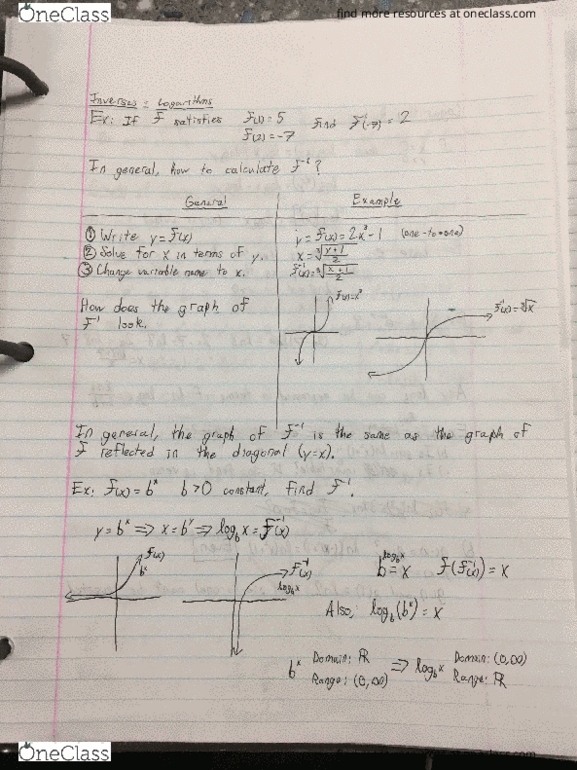 OneClass
find more resources at oneclass.com
Inverses = Logarithms
Ex: If f satisfies f(1) = 5 Find f⁻¹(-7) = 2
f(2) = -7
In general, how to calculate f⁻¹?
General Example
① Write y = f(x) y = f(x) = 2x³ - 1 (one-to-one)
② Solve for x in terms of y. x = ∛((y+1)/2)
③ Change variable name to x. f⁻¹(x) = ∛((x+1)/2)
How does the graph of f(x) = x³ f⁻¹(x) = ∛x
f⁻¹ look.
In general, the graph of f⁻¹ is the same as the graph of
f reflected in the diagonal (y=x).
Ex: f(x) = bˣ b>0 constant, find f⁻¹.
y = bˣ ⟹ x = bʸ ⟹ log_b x = f⁻¹(x)
f(x) f⁻¹(x) b^(log_b x) = x f(f⁻¹(x)) = x
bˣ log_b x
Also, log_b(bˣ) = x
bˣ Domain: ℝ ⟹ log_b x Domain: (0,∞)
Range: (0,∞) Range: ℝ
OneClass